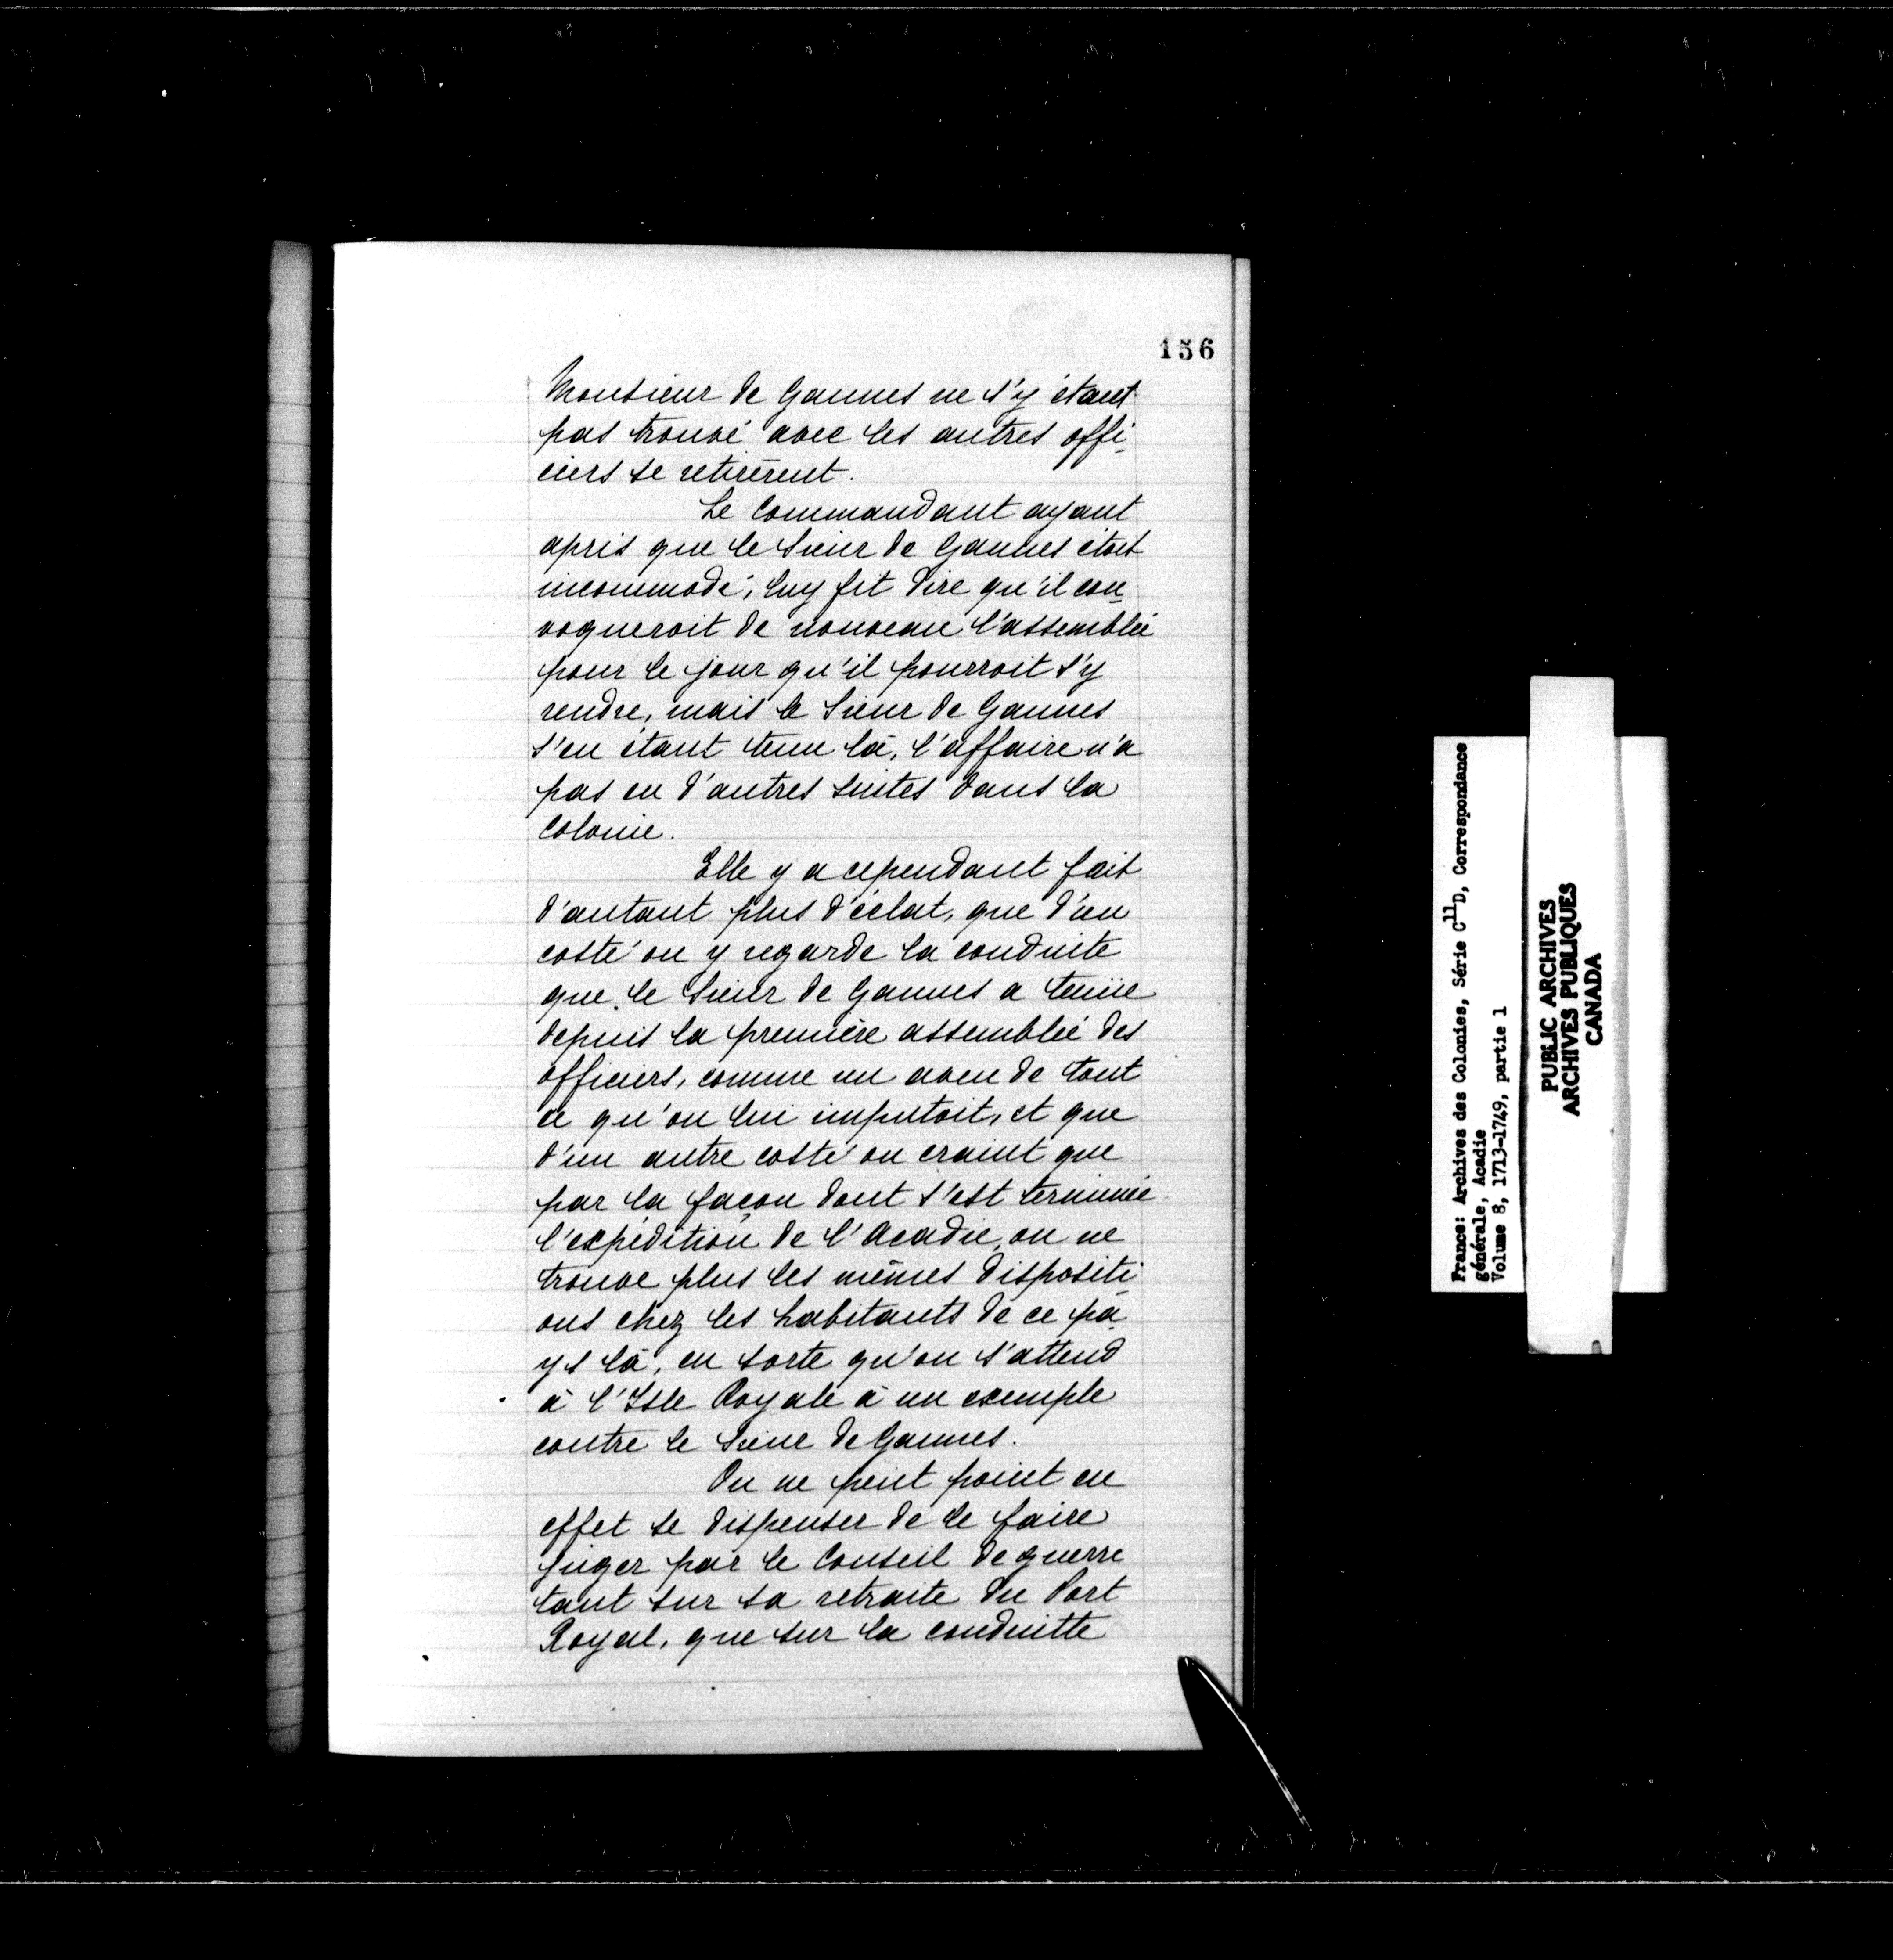 156
Monsieur de Gannes ne s'y étant
pas trouvé avec les autres offi-
ciers se retirèrent.
Le Commandant ayant
apris que le Sieur de Gannes étoit
incommodé, luy fit dire qu'il con-
voqueroit de nouveau l'assemblée
pour le jour qu'il pourroit s'y
rendre, mais le Sieur de Gannes
s'en étant tenu là, l'affaire n'a
pas eu d'autres suites dans la
Colonie.
Elle y a cependant fait
d'autant plus d'éclat, que d'un
costé on y regarde la conduite
que le Sieur de Gannes a tenüe
depuis la première assemblée des
officiers, comme un aveu de tout
ce qu'on lui imputoit, et que
d'un autre costé on craint que
par la façon dont s'est terminée
l'expédition de l'Acadie, on ne
trouve plus les mêmes dispositi-
ons chez les habitants de ce pa-
ys là, en sorte qu'on s'attend
à l'Isle Royale à un exemple
contre le Sieur de Gannes.
On ne peut point en
effet se dispenser de le faire
juger par le Conseil de guerre
tant sur sa retraite du Port
Royal, que sur la conduitte
France: Archives des Colonies, Série C11D, Correspondance
générale, Acadie
Volume 8, 1713-1749, partie 1
PUBLIC ARCHIVES
ARCHIVES PUBLIQUES
CANADA